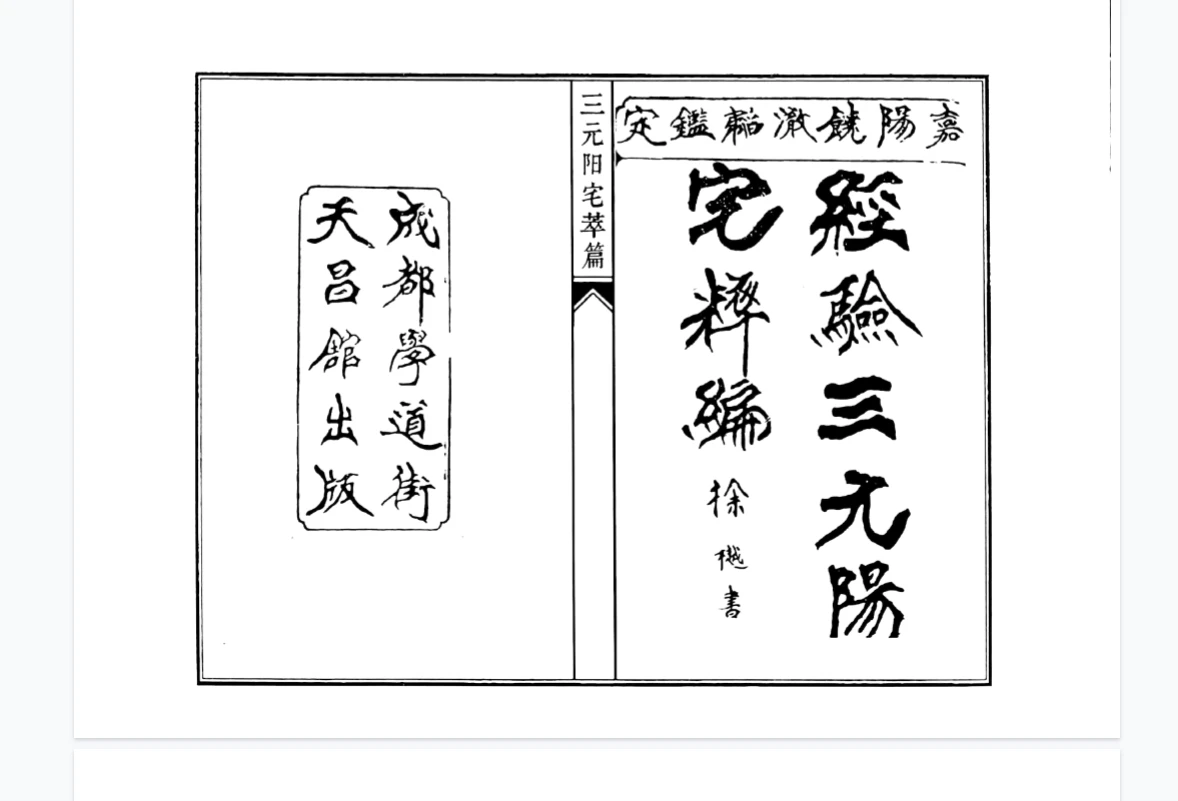 嘉陽饒澂䵻鑑定
經驗三元陽
宅粹編
徐樾書
三元阳宅萃篇
成都學道街
天昌舘出版